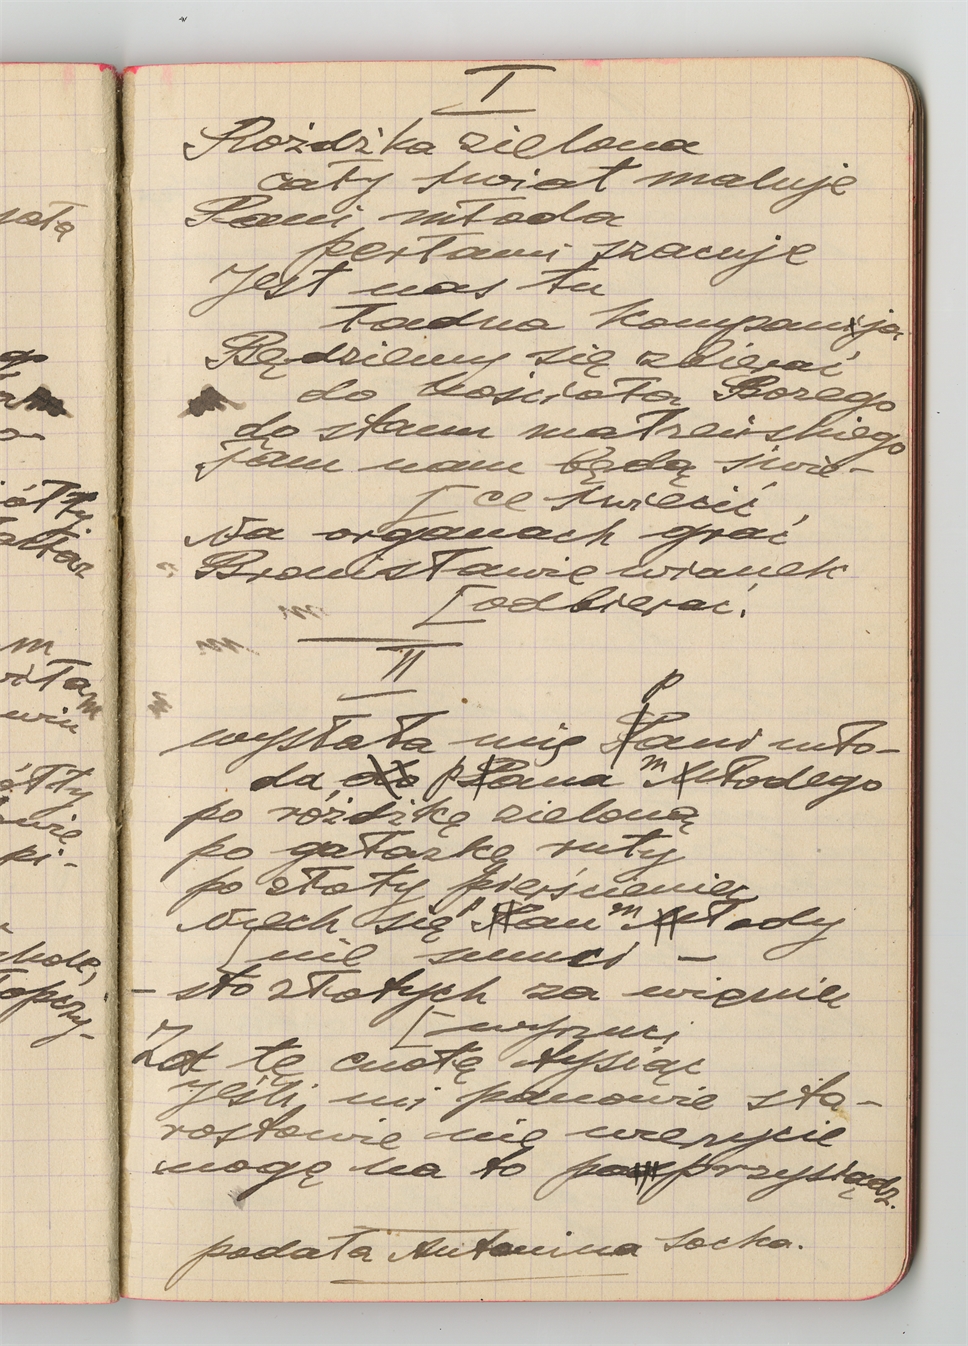 I
Rożdżka zielona
cały świat maluje
Pani młoda
perłami szacuje
Jest nas tu
ładna kompanija
Będziemy się zbierać
do kościoła Bożego
do stanu małżeńskiego
Jam nam będą świe-
[ce świecić
Na organach grać
Bronisławie wianek
[odbierać.
II
wysłała mię pani mło-
da do pana młodego
po różdżkę zieloną
po gałązkę ruty
po złoty pierścieniec
Niech się pan młody
[nie smuci –
– sto złotych za wieniec
[wyrzuci
Za tę cnotę tysiąc
Jeśli mi panowie sta-
rostowie nie wierzycie
mogę na to przysiądz.
podała Antonina Socha.
ółty
ołtarz
m
witam
ółty
pi-